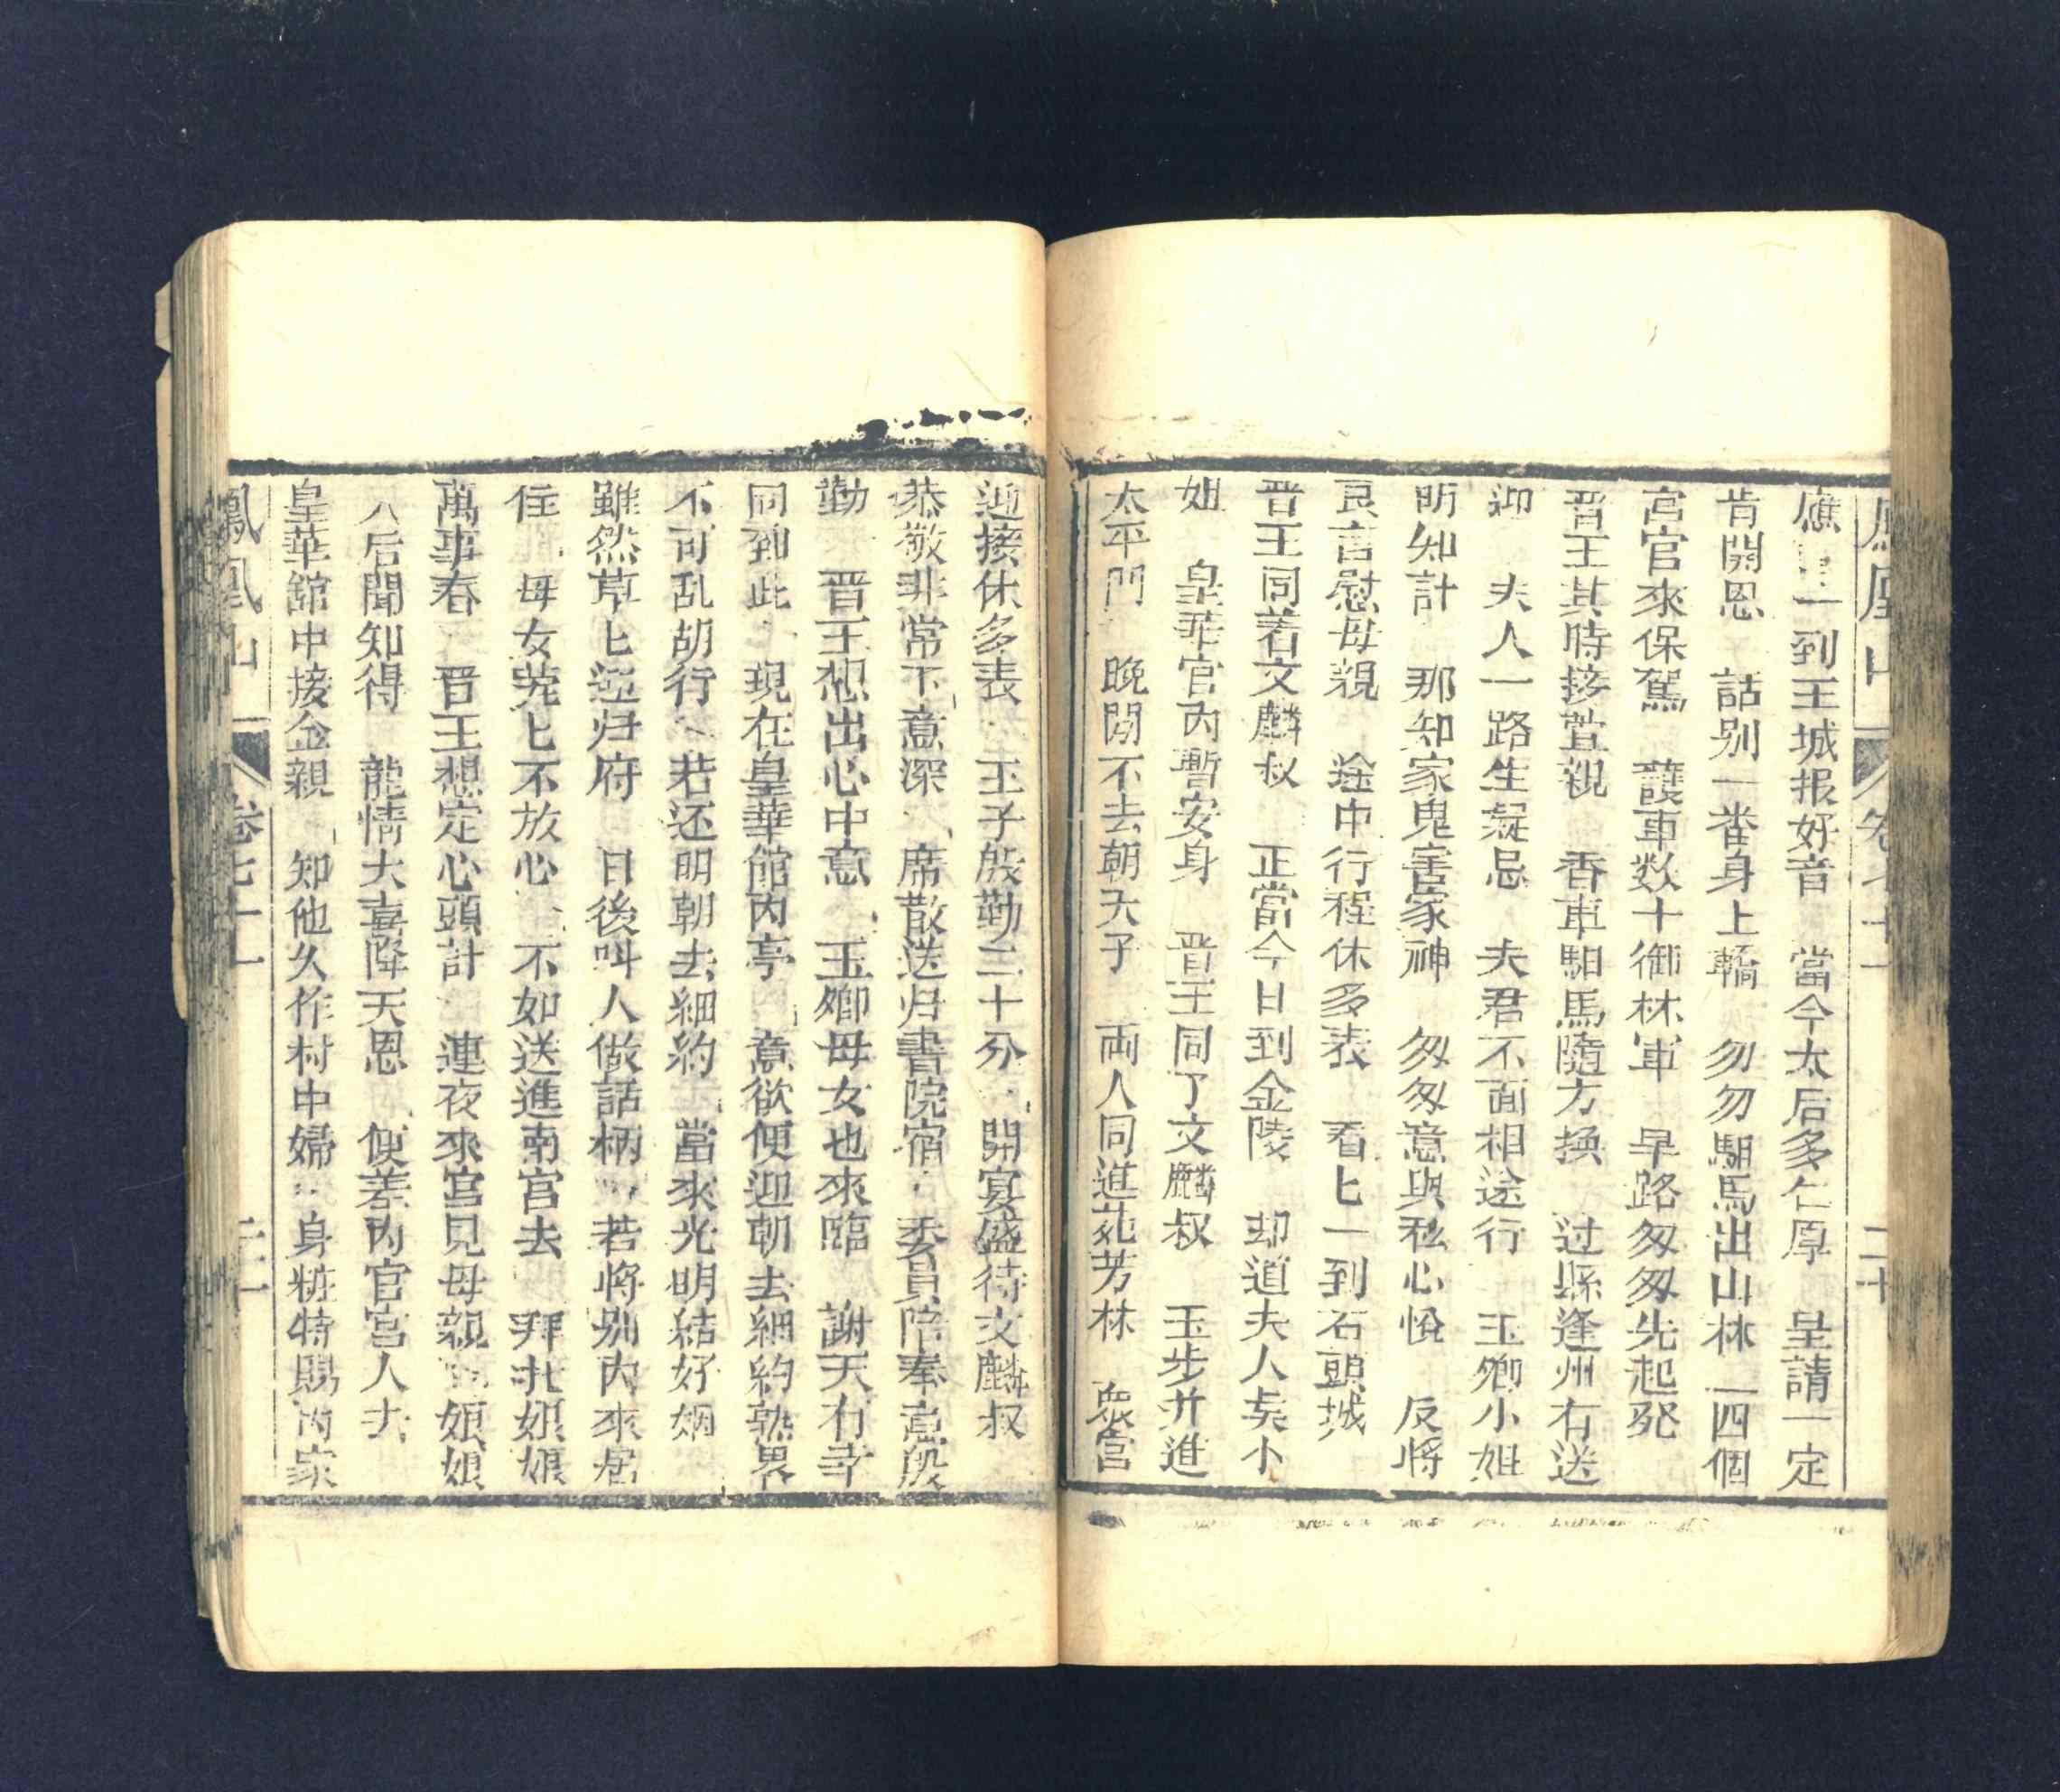 應 一到王城报好音　當今太后多仁厚　呈請一定
肯開恩　話别一畨身上轎　匆匆駙馬出山林　一四個
宮官來保駕　護車数十御林軍　早路匆匆先起程
晋王其時接萱親　香車駙馬隨方換　过縣逢州有送
迎　夫人一路生疑忌　夫君不面相途行　玉卿小姐
明知計　那知家鬼害家神　匆匆意與私心悅　反將
良言慰母親　途中行程休多表　看匕一到石頭城
晋王同着文麟叔　正當今日到金陵　却道夫人矣小
姐　皇華官内暫安身　晋王同了文麟叔　玉步并進
太平門　晚間不去朝天子　両人同進苑芳林　衆宮
迎接休多表　王子殷勤三十分　開宴盛待文麟叔
恭敬非常下意深　席散送归書院宿　委員陪奉意殷
勤　晋王想出心中意　玉卿母女也來臨　謝天有幸
同到此　現在皇華館内亭　意欲便迎朝去細約熟畧
不可乱胡行　若还明朝去細約　當來光明結好姻
雖然草匕迎归府　日後呌人做話柄　若将别内來居
住　母女荒匕不放心　不如送進南官去　拜托娘娘
萬事春　晋王想定心頭計　連夜來宮見母親　娘娘
太后聞知得　龍情大喜降天恩　便差内官宮人去
皇華舘中接金親　知他久作村中婦　身粧特賜内家
鳳凰山　卷七十一